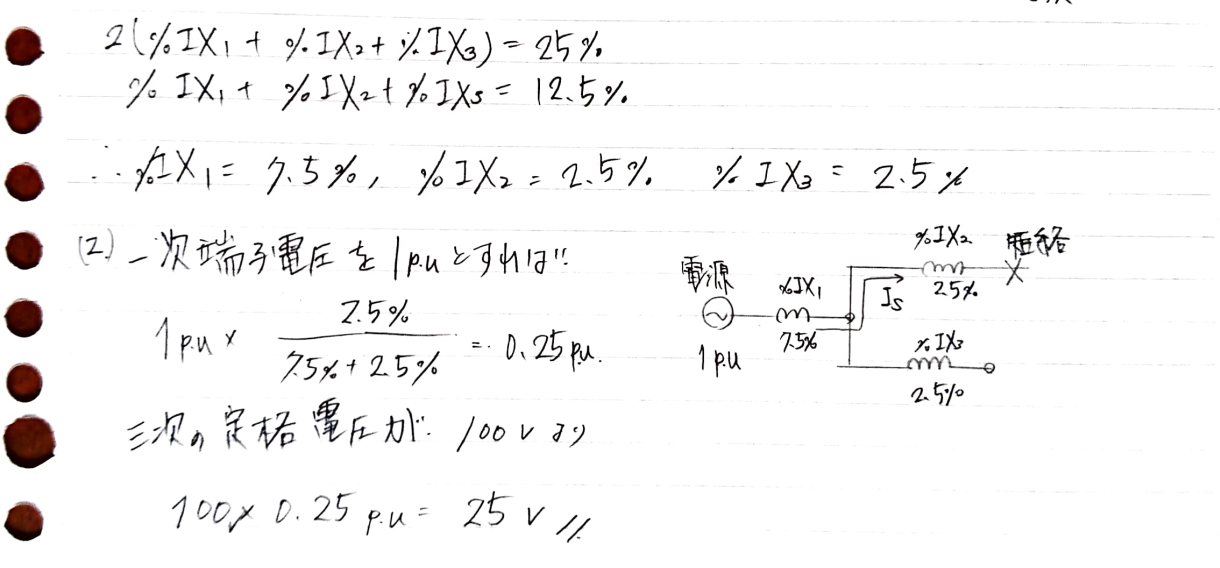 2(%IX₁ + %IX₂ + %IX₃) = 25%
%IX₁ + %IX₂ + %IX₃ = 12.5%
∴ %IX₁ = 7.5%, %IX₂ = 2.5% %IX₃ = 2.5%
(2) 一次端子電圧を1p.uとすれば
1p.u × 2.5% / 7.5% + 2.5% = 0.25p.u.
三次の定格電圧が 100Vより
100 × 0.25 p.u = 25 V //
%IX₂ 短絡
電源 %IX₁ Is 2.5%
7.5% %IX₃
1p.u
2.5%